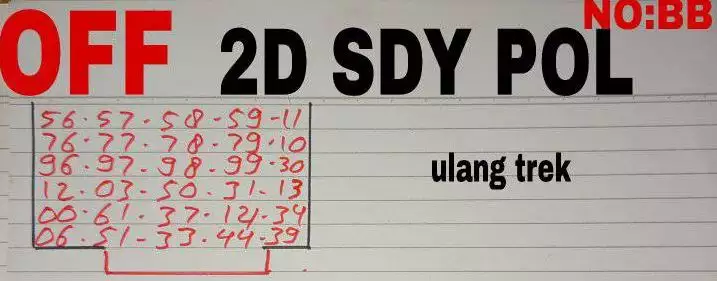 NO:BB
OFF 2D SDY POL
56.57.58.59-11
76.77.78.79.10
96.97.98.99.30
12.03.50.31.13
00.61.37.121.34
06.51-33.44.39
ulang trek